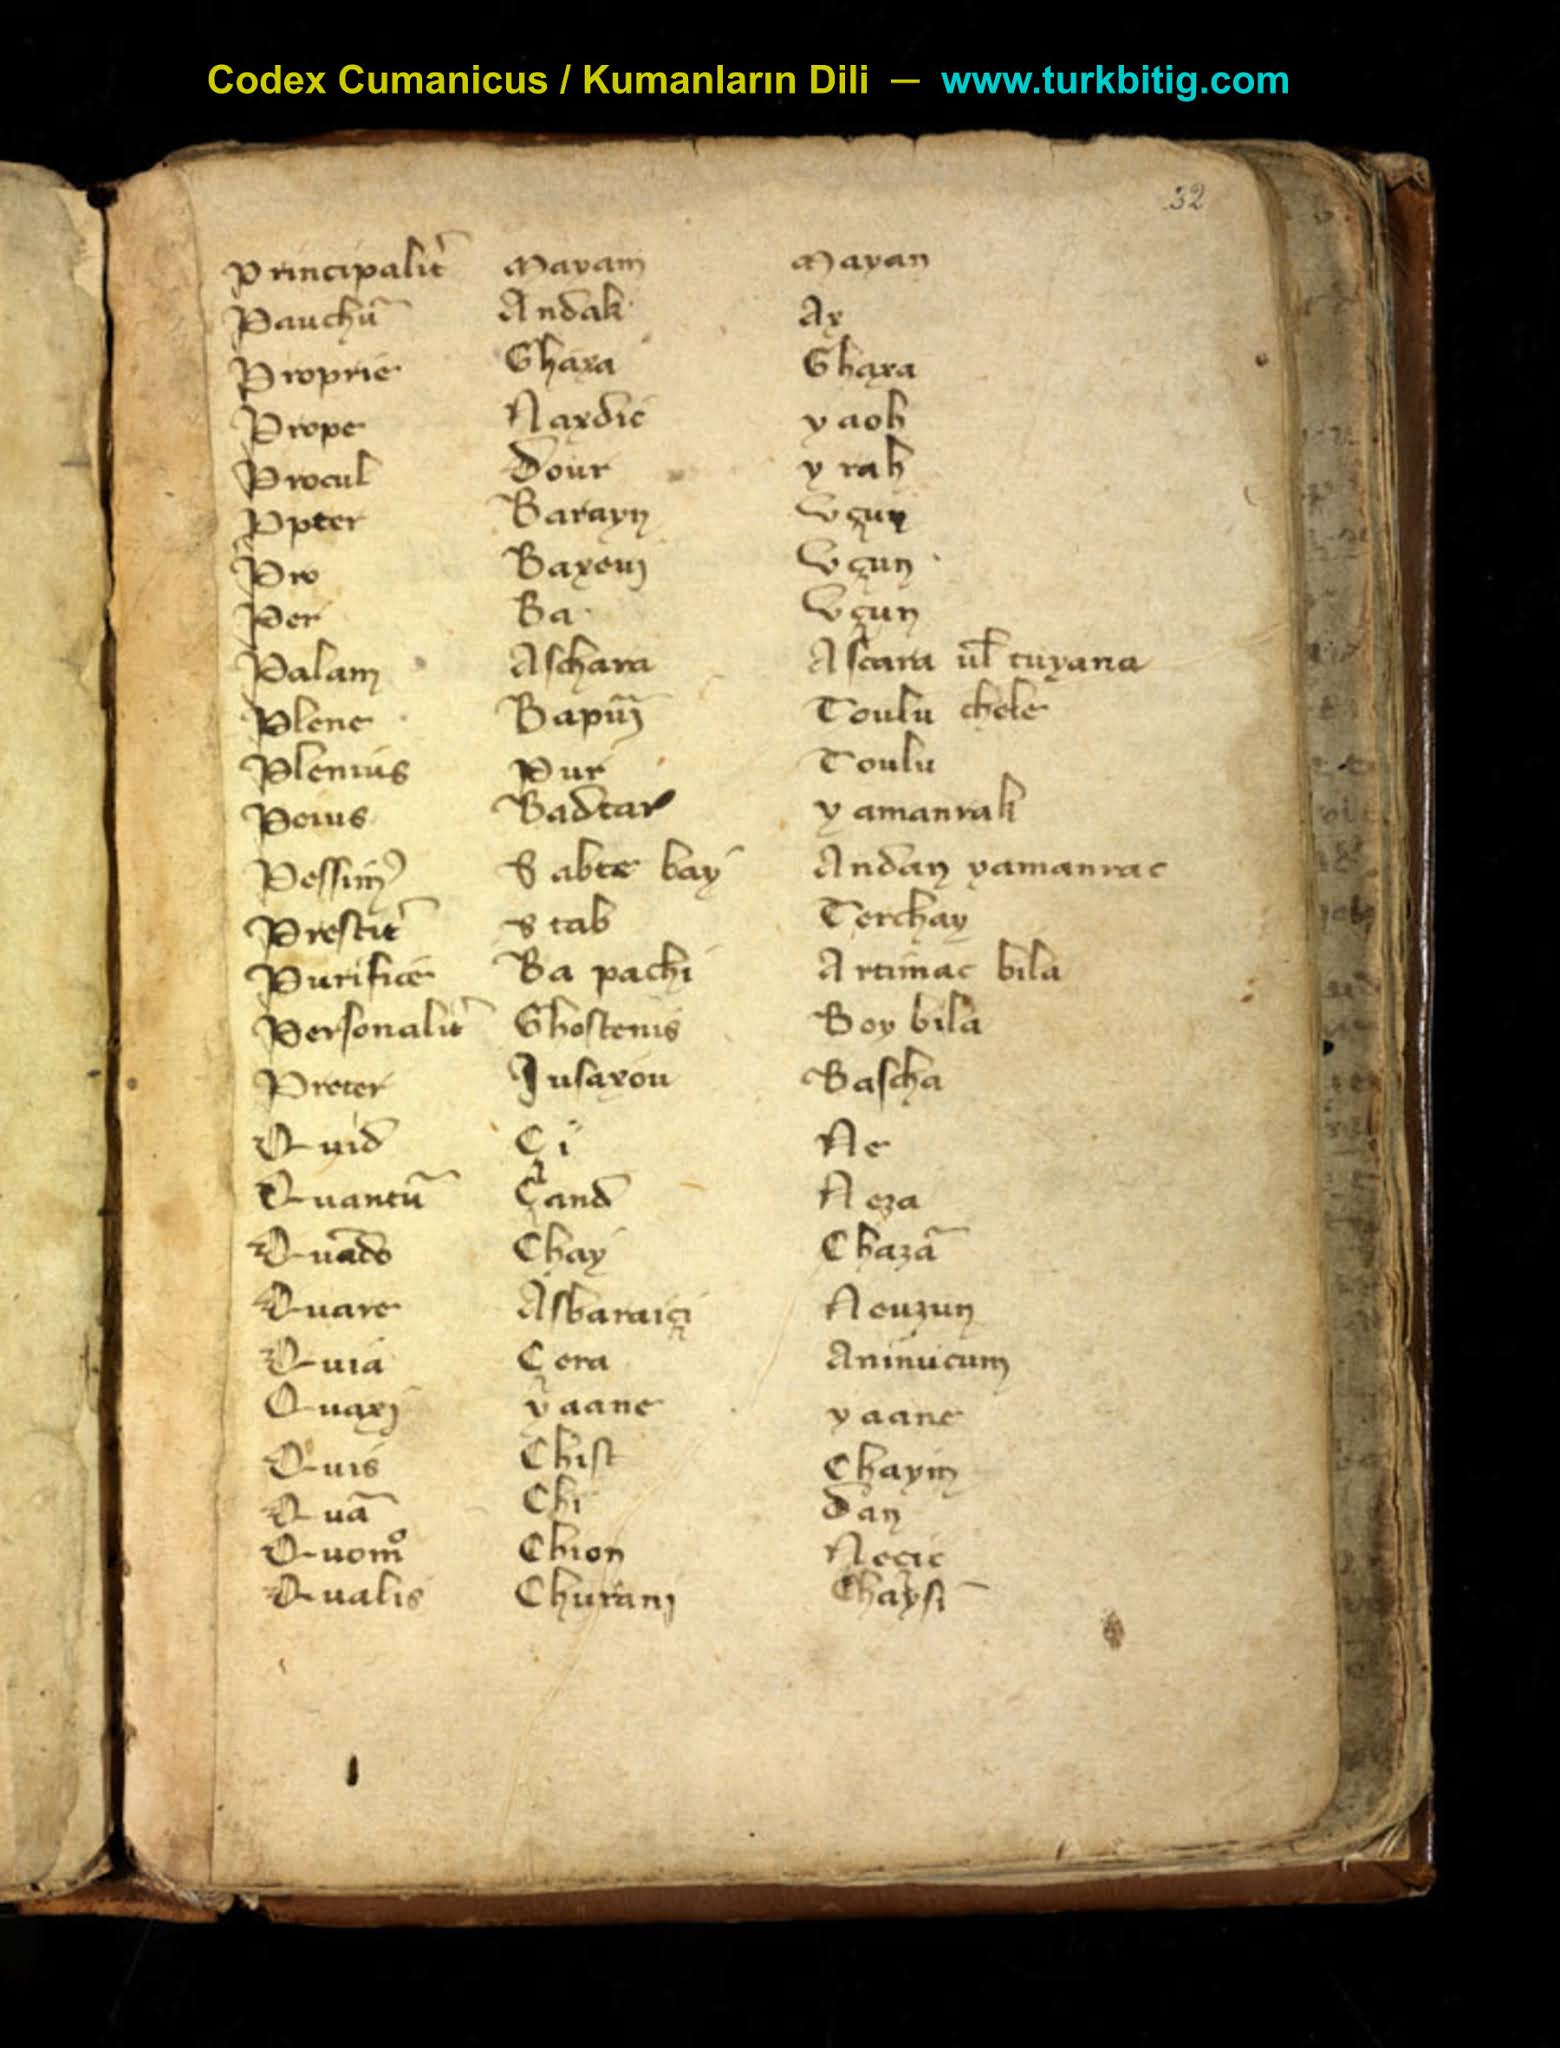 Codex Cumanicus / Kumanların Dili — www.turkbitig.com
32
Principalit̃ Mayam Mayan
Pauchũ Andak Aχ
Proprie Ghaxa Ghaxa
Prope Naxdic yaoh
Procul dour yrah
Ppter Barayn Vçun
Pro Baxeuj Vçun
Per Ba Vçun
Palam Aschara Ascara ul̃ tuyana
Plene Bapuri Toulu chele
Plenius Pur Toulu
Peius Badtar yamanrak
Pessim9 Sabte bay Andan yamanrac
Prestit̃ Stab Terchay
Purifice Ba pachi Artimac bila
Personalit̃ Ghostenis Boy bila
Preter Jusaxou Bascha
Quid Ci Ne
Quantũ Çand Neza
Quãdo Chay Chazã
Quare Asbaraiçi Neuzun
Quia Cera Aninucum
Quaxj yaane yaane
Quis Chist Chayin
Quã Chi dan
Quomo Chion Necic
Qualis Churanj Chaysĩ